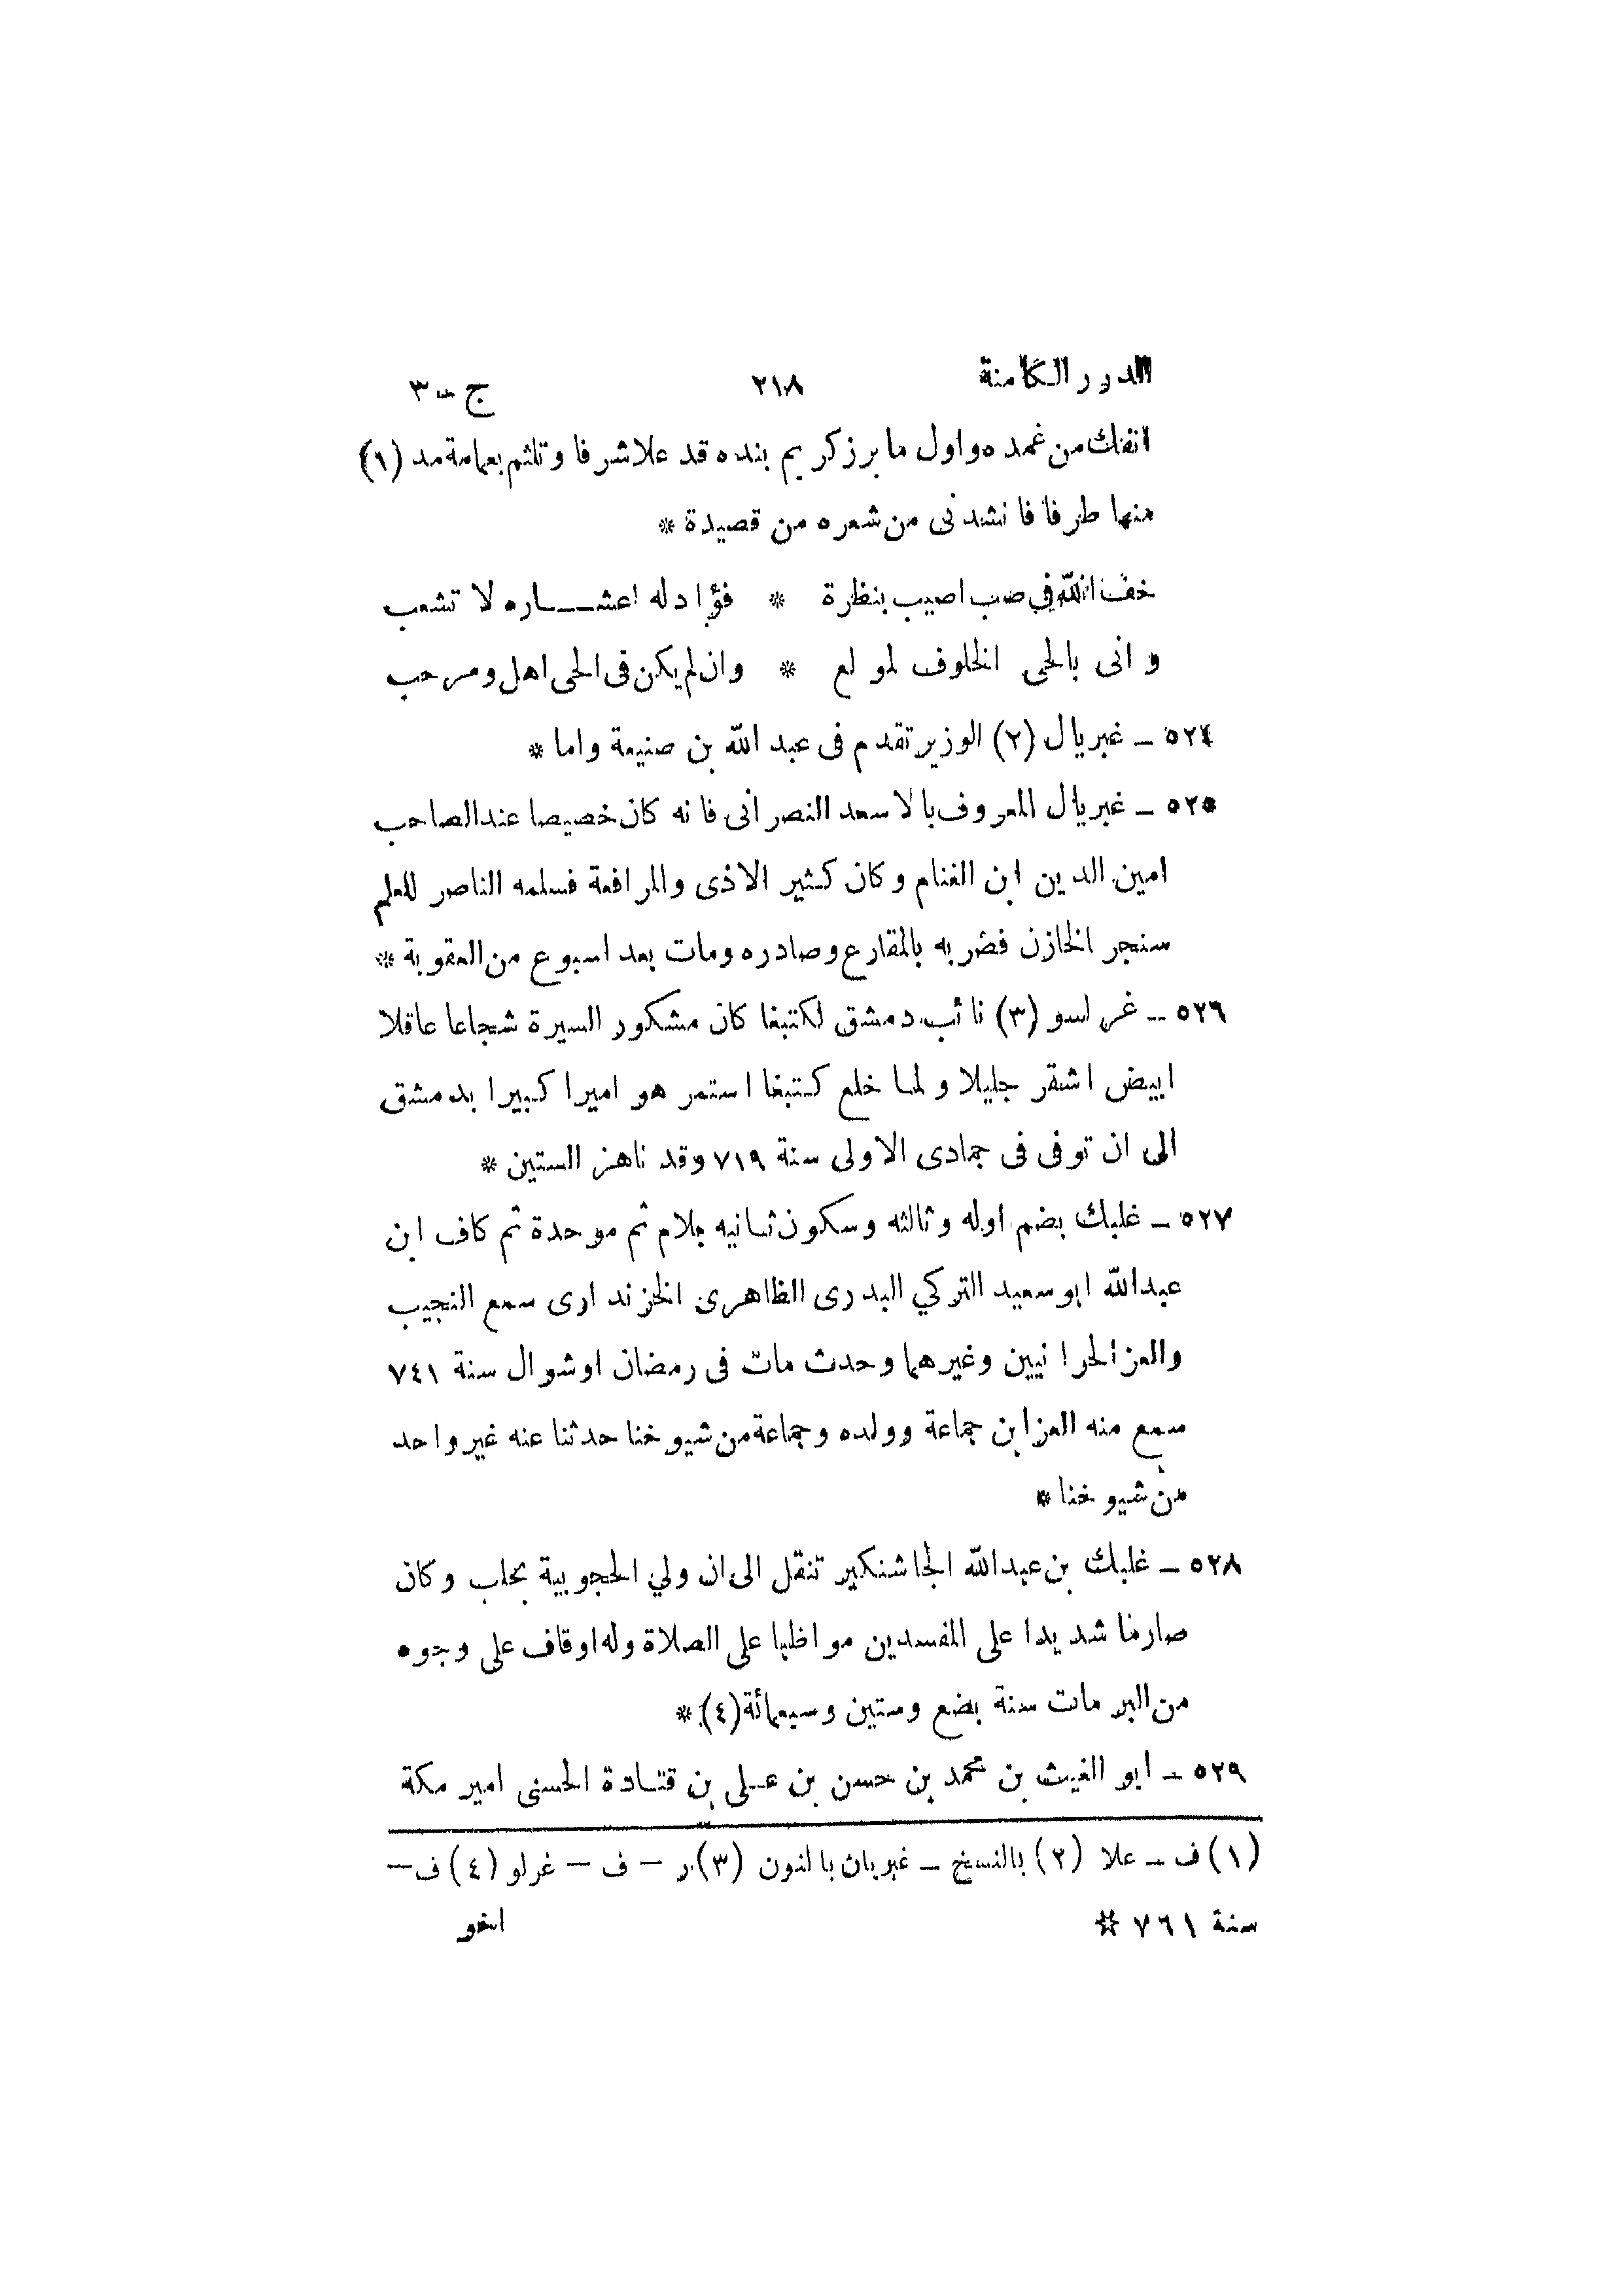 الدرر الكامنة ٢١٨ ج - ٣
انفك من غمده واول ما برز كريم بنده قد علا شرفا وتلثم بعمامة مد (١)
منها طرفا فانشدنى من شعره من قصيدة *
خف الله في صب اصيب بنظرة * فؤاد له اعشـــاره لا تشعب
وانى بالحى الخلوف لمولع * وان لم يكن فى الحى اهل ومرحب
٥٢٤ - غبريال (٢) الوزير تقدم فى عبد الله بن صنيعة واما *
٥٢٥ - غبريال المعروف بالاسعد النصرانى فانه كان خصيصا عند الصاحب
امين الدين ابن الغنام وكان كثير الاذى والمرافعة فسلمه الناصر للعلم
سنجر الخازن فضربه بالمقارع وصادره ومات بعد اسبوع من العقوبة *
٥٢٦ - غرلسو (٣) نائب دمشق لكتبغا كان مشكور السيرة شجاعا عاقلا
ابيض اشقر جليلا ولما خلع كتبغا استمر هو اميرا كبيرا بدمشق
الى ان توفى فى جمادى الاولى سنة ٧١٩ وقد ناهز الستين *
٥٢٧ - غلبك بضم اوله وثالثه وسكون ثانيه بلام ثم موحدة ثم كاف ابن
عبدالله ابو سعيد التركي البدرى الظاهرى الخزندارى سمع النجيب
والعز الحرانيين وغيرهما وحدث مات فى رمضان اوشوال سنة ٧٤١
سمع منه العز ابن جماعة وولده وجماعة من شيوخنا حدثنا عنه غير واحد
من شيوخنا *
٥٢٨ - غلبك بن عبدالله الجاشنكير تنقل الى ان ولي الحجوبية بحلب وكان
صارما شديدا على المفسدين مواظبا على الصلاة وله اوقاف على وجوه
من البر مات سنة بضع وستين وسبعمائة (٤) *
٥٢٩ - ابو الغيث بن محمد بن حسن بن عـلى بن قتـادة الحسنى امير مكة
(١) ف - علا (٢) بالنسخ - غبريان بالنون (٣) ر - ف - غرلو (٤) ف -
سنة ٧٦١ * اخو